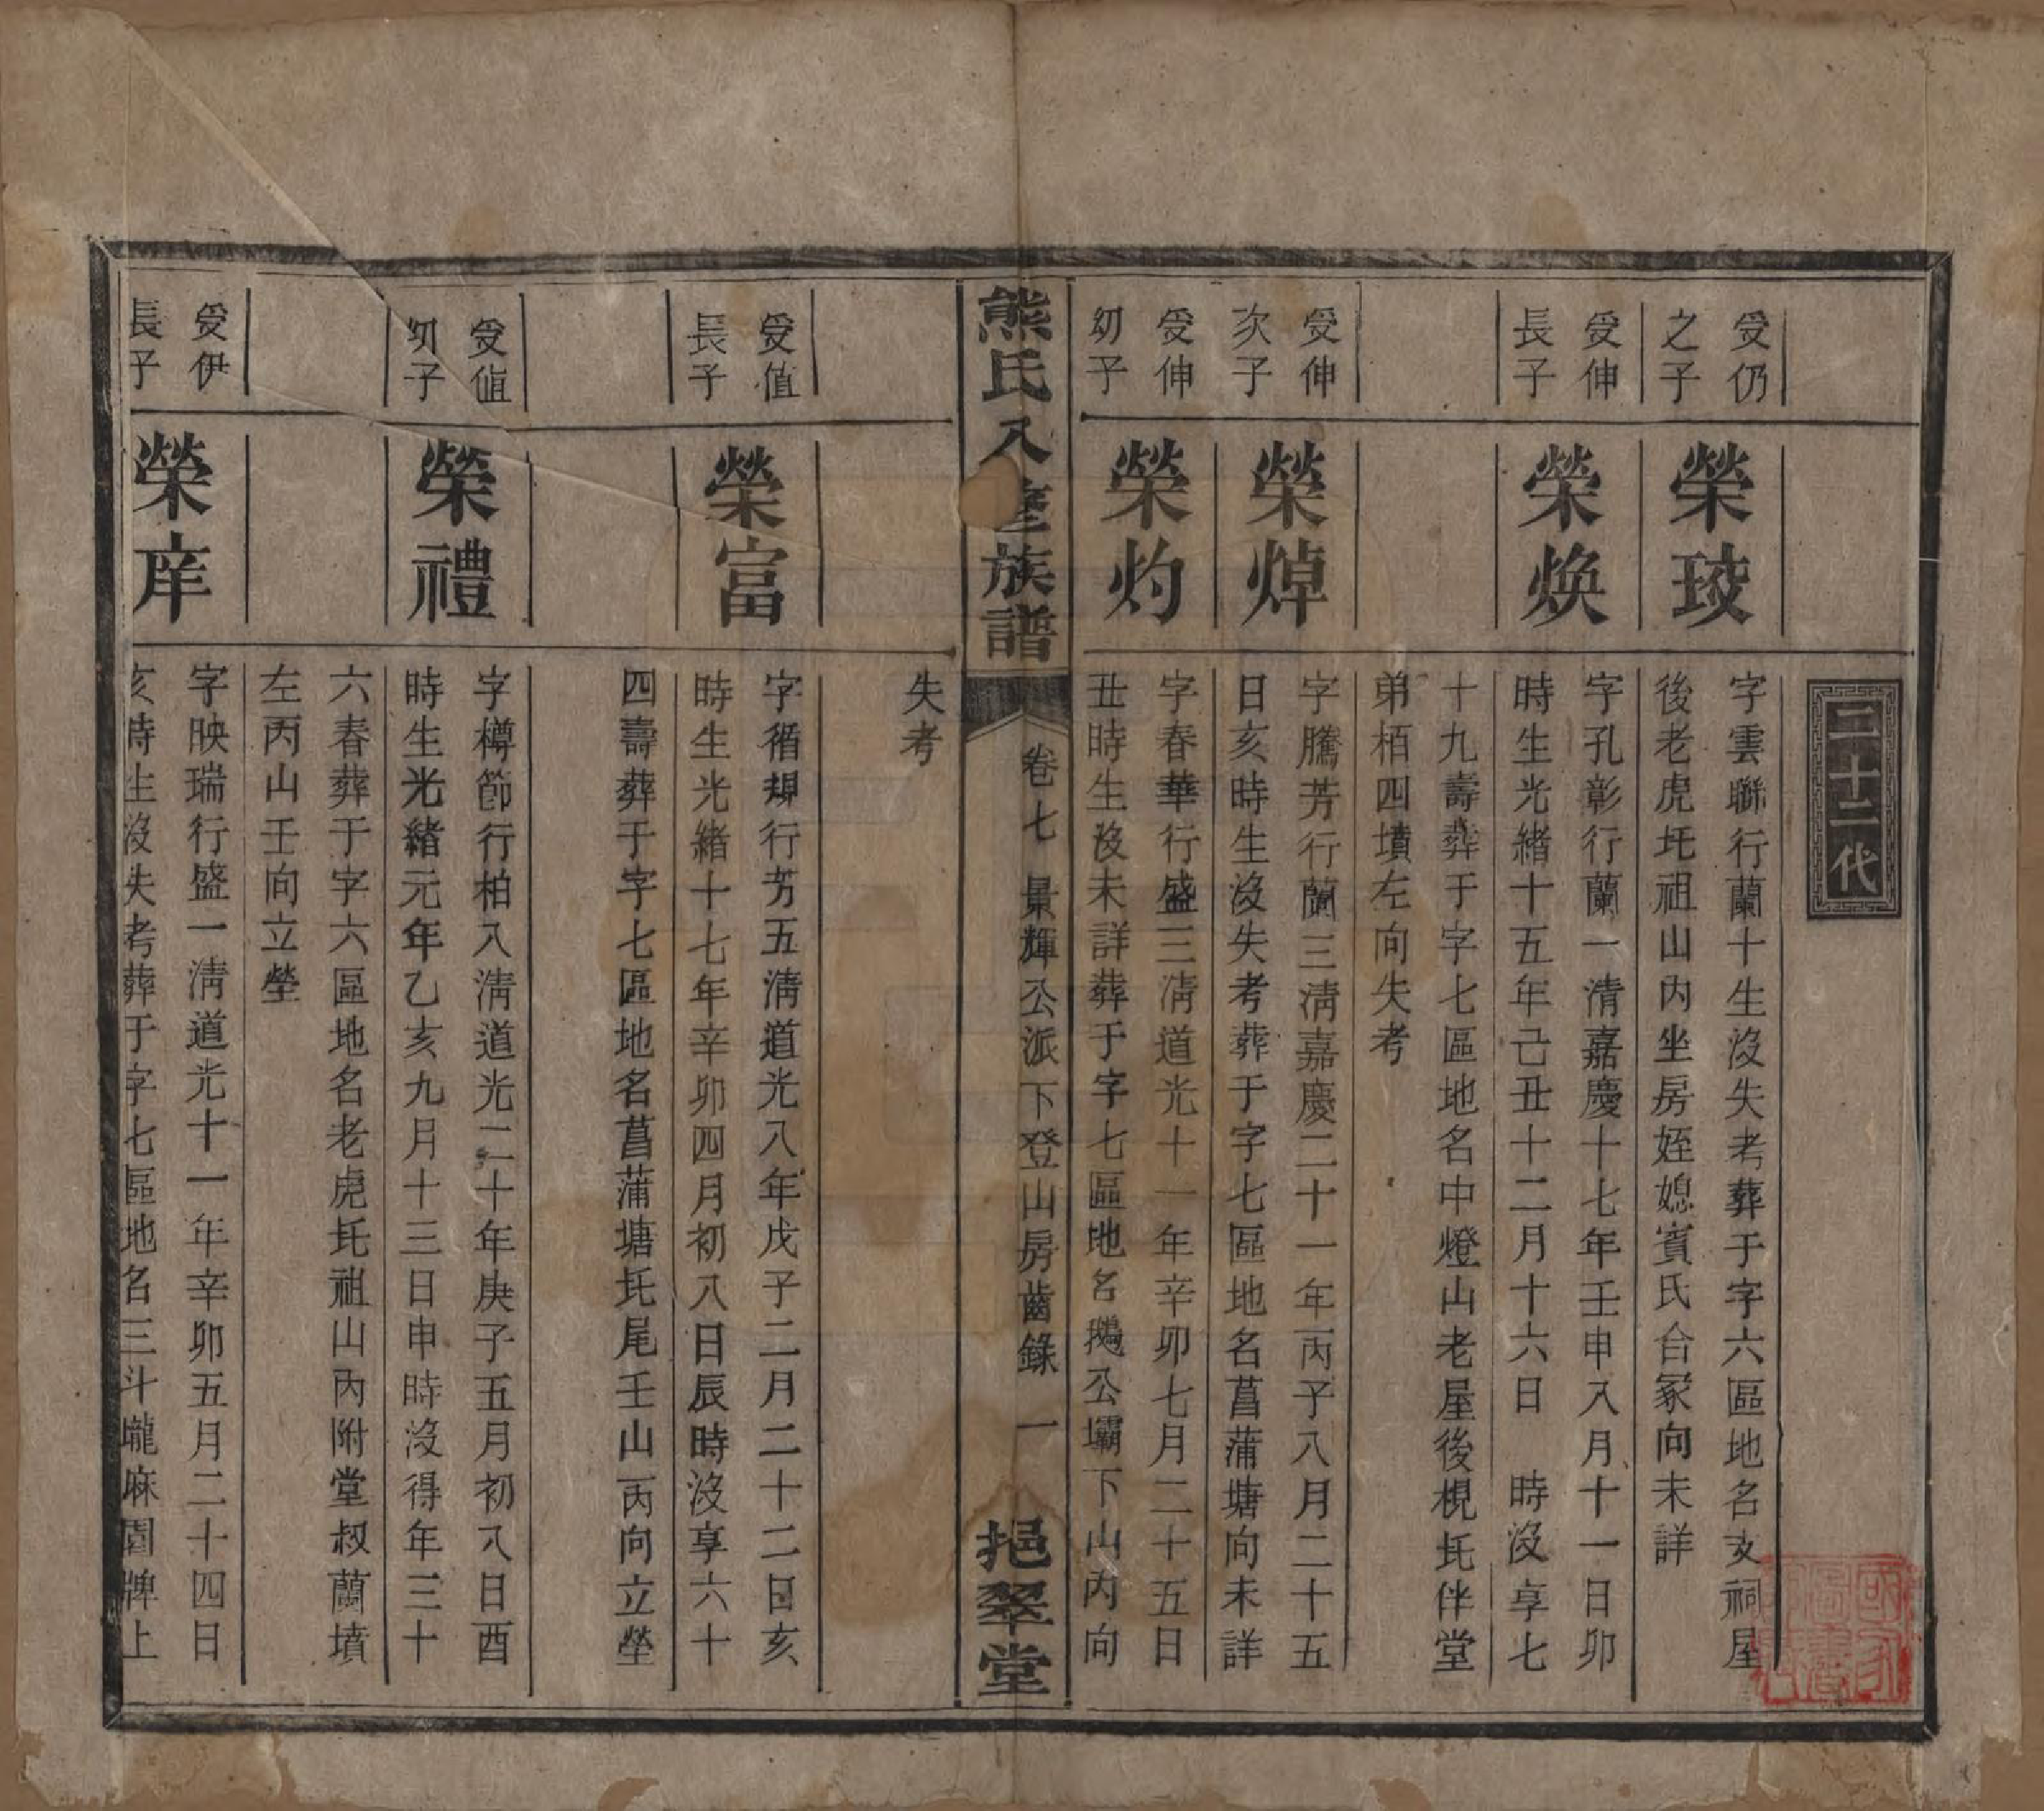 二十二代
受仍
之子
榮珓
字雲聯行蘭十生沒失考葬于字六區地名支祠屋
後老虎圫祖山內坐房姪媳賓氏合冢向未詳
受伸
長子
榮煥
字孔彰行蘭一清嘉慶十七年壬申八月十一日卯
時生光緒十五年己丑十二月十六日　時沒享七
十九壽葬于字七區地名中燈山老屋後梘圫伴堂
弟栢四墳左向失考
受伸
次子
榮焯
字騰芳行蘭三清嘉慶二十一年丙子八月二十五
日亥時生沒失考葬于字七區地名菖蒲塘向未詳
受伸
幼子
榮灼
字春華行盛三清道光十一年辛卯七月二十五日
丑時生沒未詳葬于字七區地名鵝公壩下山內向
熊氏八修族譜
卷七　景輝公派下登山房齒錄　一
挹翠堂
失考
受值
長子
榮富
字循規行芳五清道光八年戊子二月二十二日亥
時生光緒十七年辛卯四月初八日辰時沒享六十
四壽葬于字七區地名菖蒲塘圫尾壬山丙向立塋
受值
幼子
榮禮
字樽節行柏入清道光二十年庚子五月初八日酉
時生光緒元年乙亥九月十三日申時沒得年三十
六春葬于字六區地名老虎圫祖山內附堂叔蘭墳
左丙山壬向立塋
受伊
長子
榮庠
字映瑞行盛一清道光十一年辛卯五月二十四日
亥時生沒失考葬于字七區地名三斗壠麻園牌上